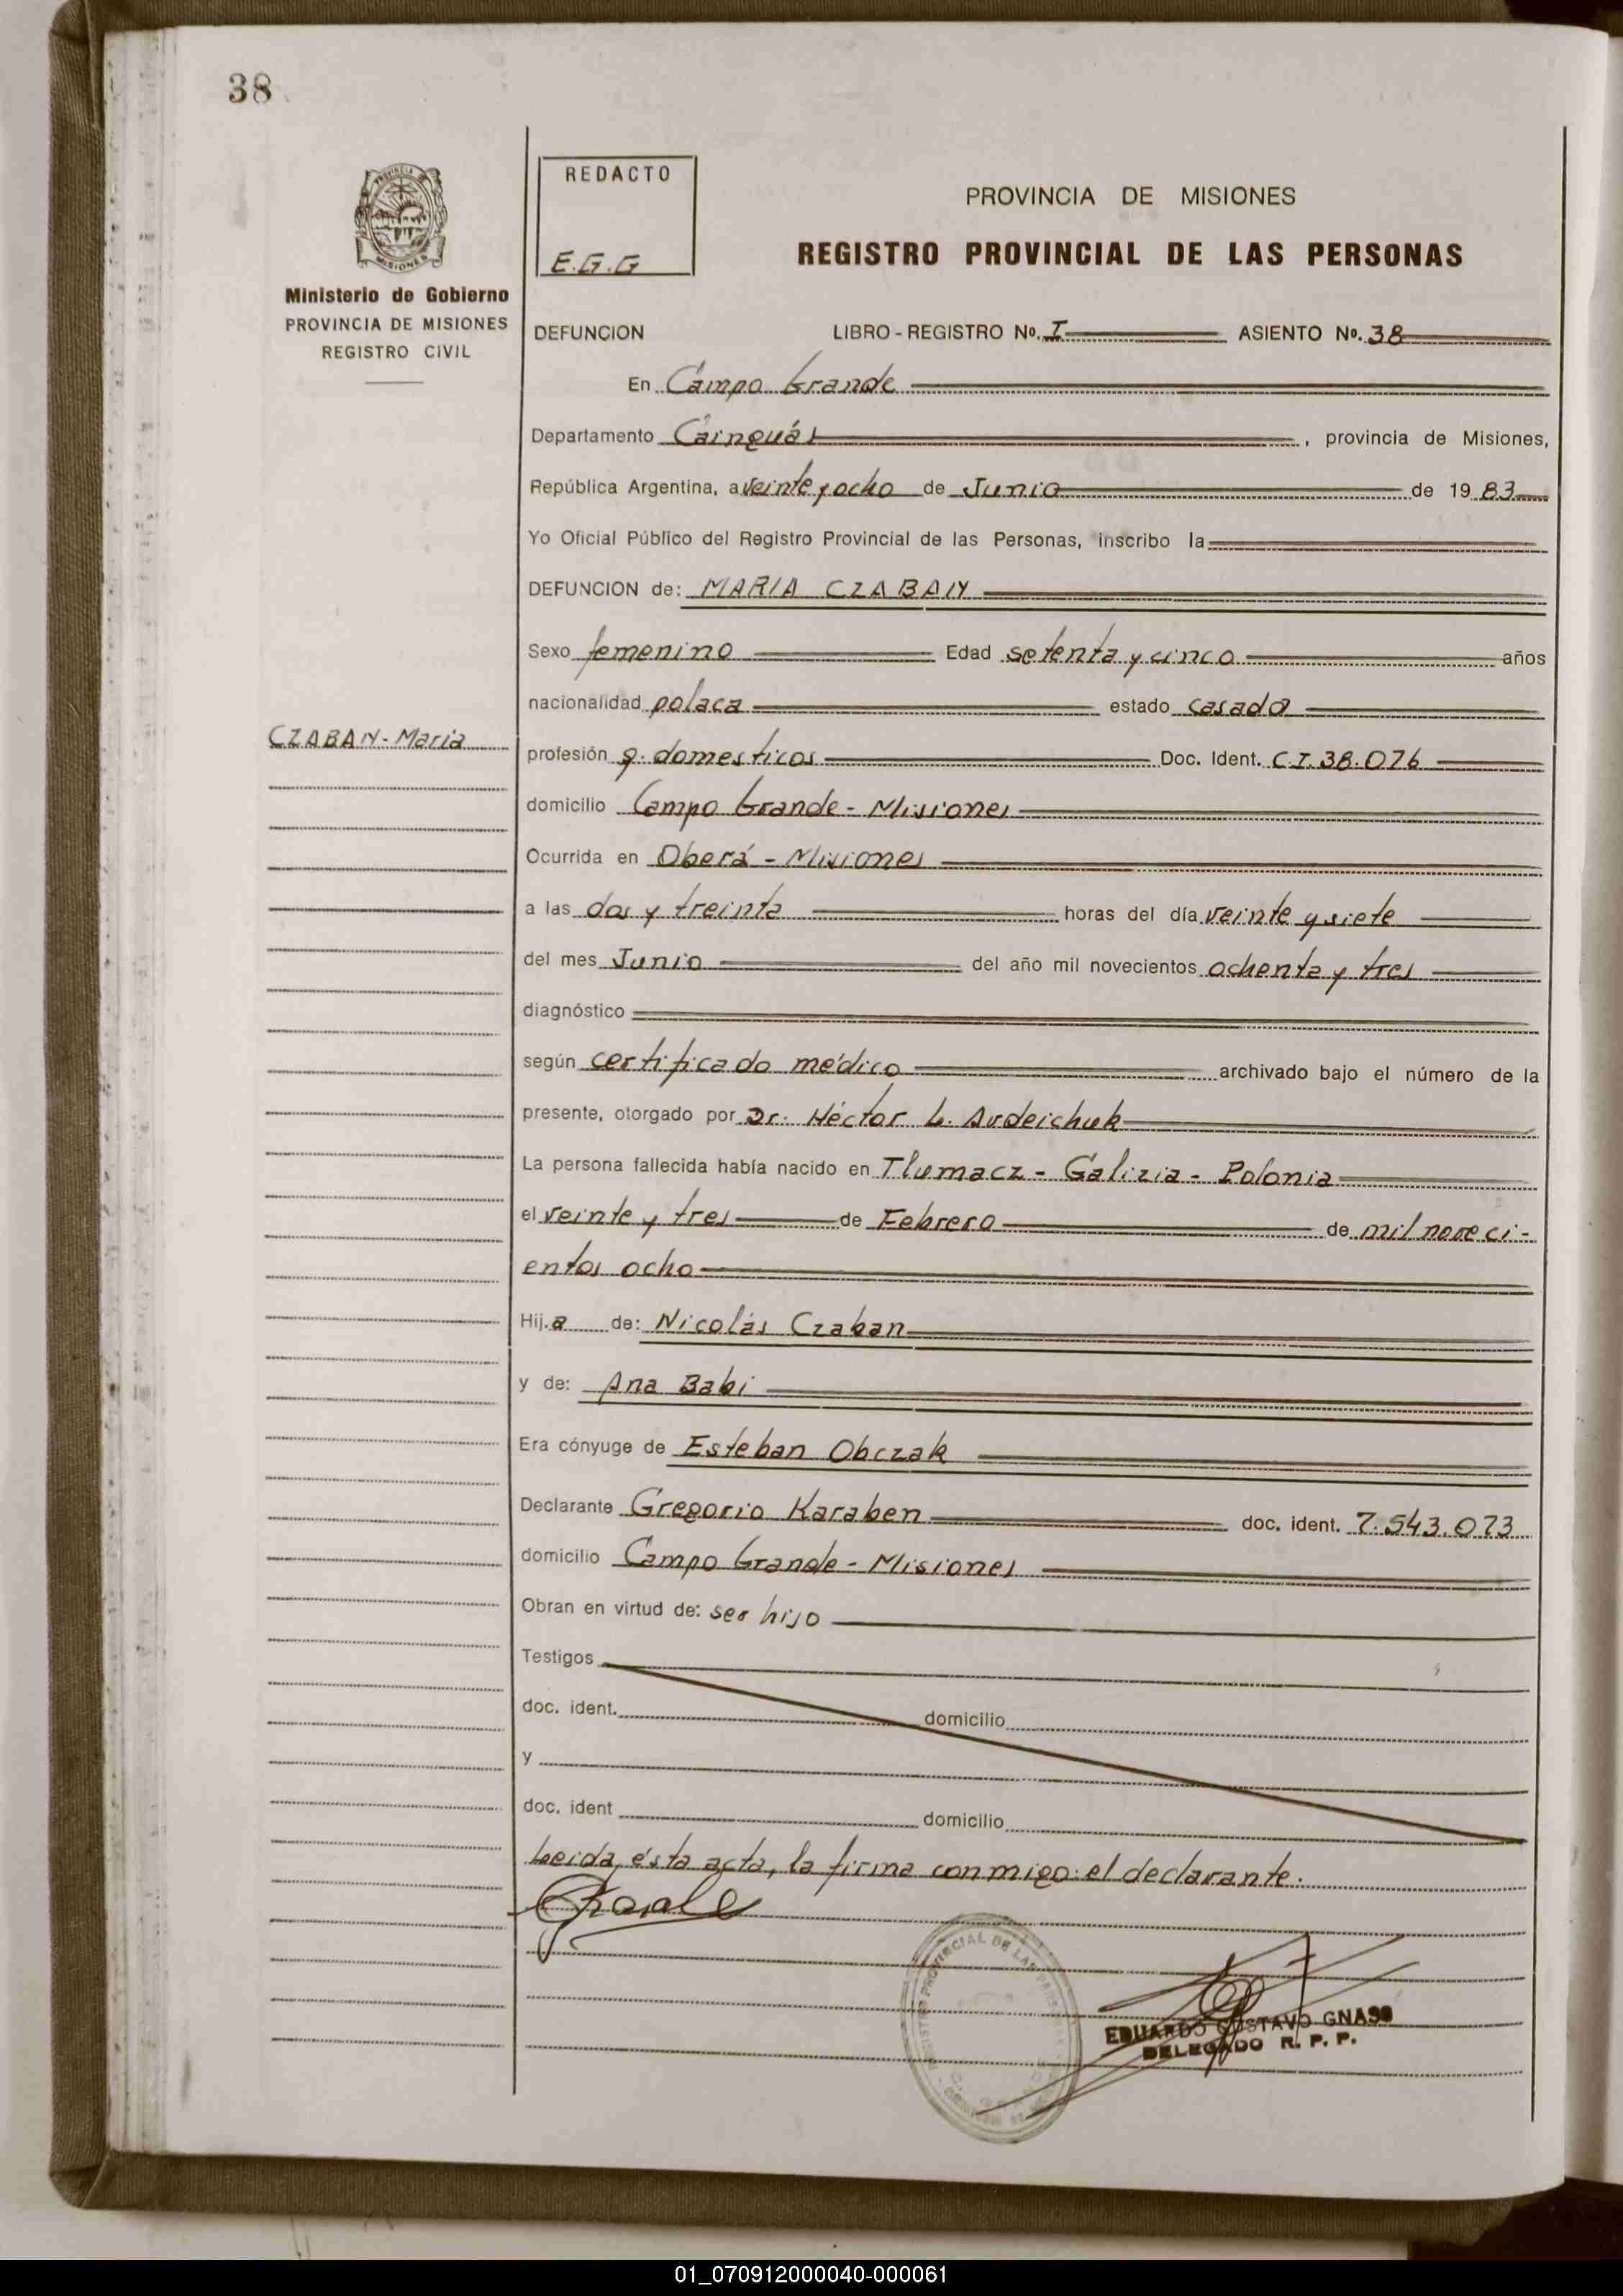 38
PROVINCIA
MISIONES
Ministerio de Gobierno
PROVINCIA DE MISIONES
REGISTRO CIVIL
REDACTO
E.G.G
PROVINCIA DE MISIONES
REGISTRO PROVINCIAL DE LAS PERSONAS
DEFUNCION LIBRO - REGISTRO No. I ASIENTO No. 38
En Campo Grande
Departamento Cainguás, provincia de Misiones,
República Argentina, a veinte y ocho de Junio de 19 83
Yo Oficial Público del Registro Provincial de las Personas, inscribo la
DEFUNCION de: MARIA CZABAN
Sexo femenino Edad setenta y cinco años
nacionalidad polaca estado casada
CZABAN - Maria
profesión q. domesticos Doc. Ident. C.I. 38.076
domicilio Campo Grande - Misiones
Ocurrida en Oberá - Misiones
a las dos y treinta horas del día veinte y siete
del mes Junio del año mil novecientos ochenta y tres
diagnóstico
según certificado médico archivado bajo el número de la
presente, otorgado por Dr. Héctor L. Audeichuk
La persona fallecida había nacido en Tlumacz - Galizia - Polonia
el veinte y tres de Febrero de mil noveci-
entos ocho
Hij.a de: Nicolás Czaban
y de: Ana Babi
Era cónyuge de Esteban Obczak
Declarante Gregorio Karaben doc. ident. 7.543.073
domicilio Campo Grande - Misiones
Obran en virtud de: ser hijo
Testigos
doc. ident. domicilio
y
doc. ident domicilio
Leida ésta acta, la firma conmigo: el declarante.
REGISTRO PROVINCIAL DE LAS PERSONAS
EDUARDO GUSTAVO GNASS
DELEGADO R. P. P.
01_070912000040-000061